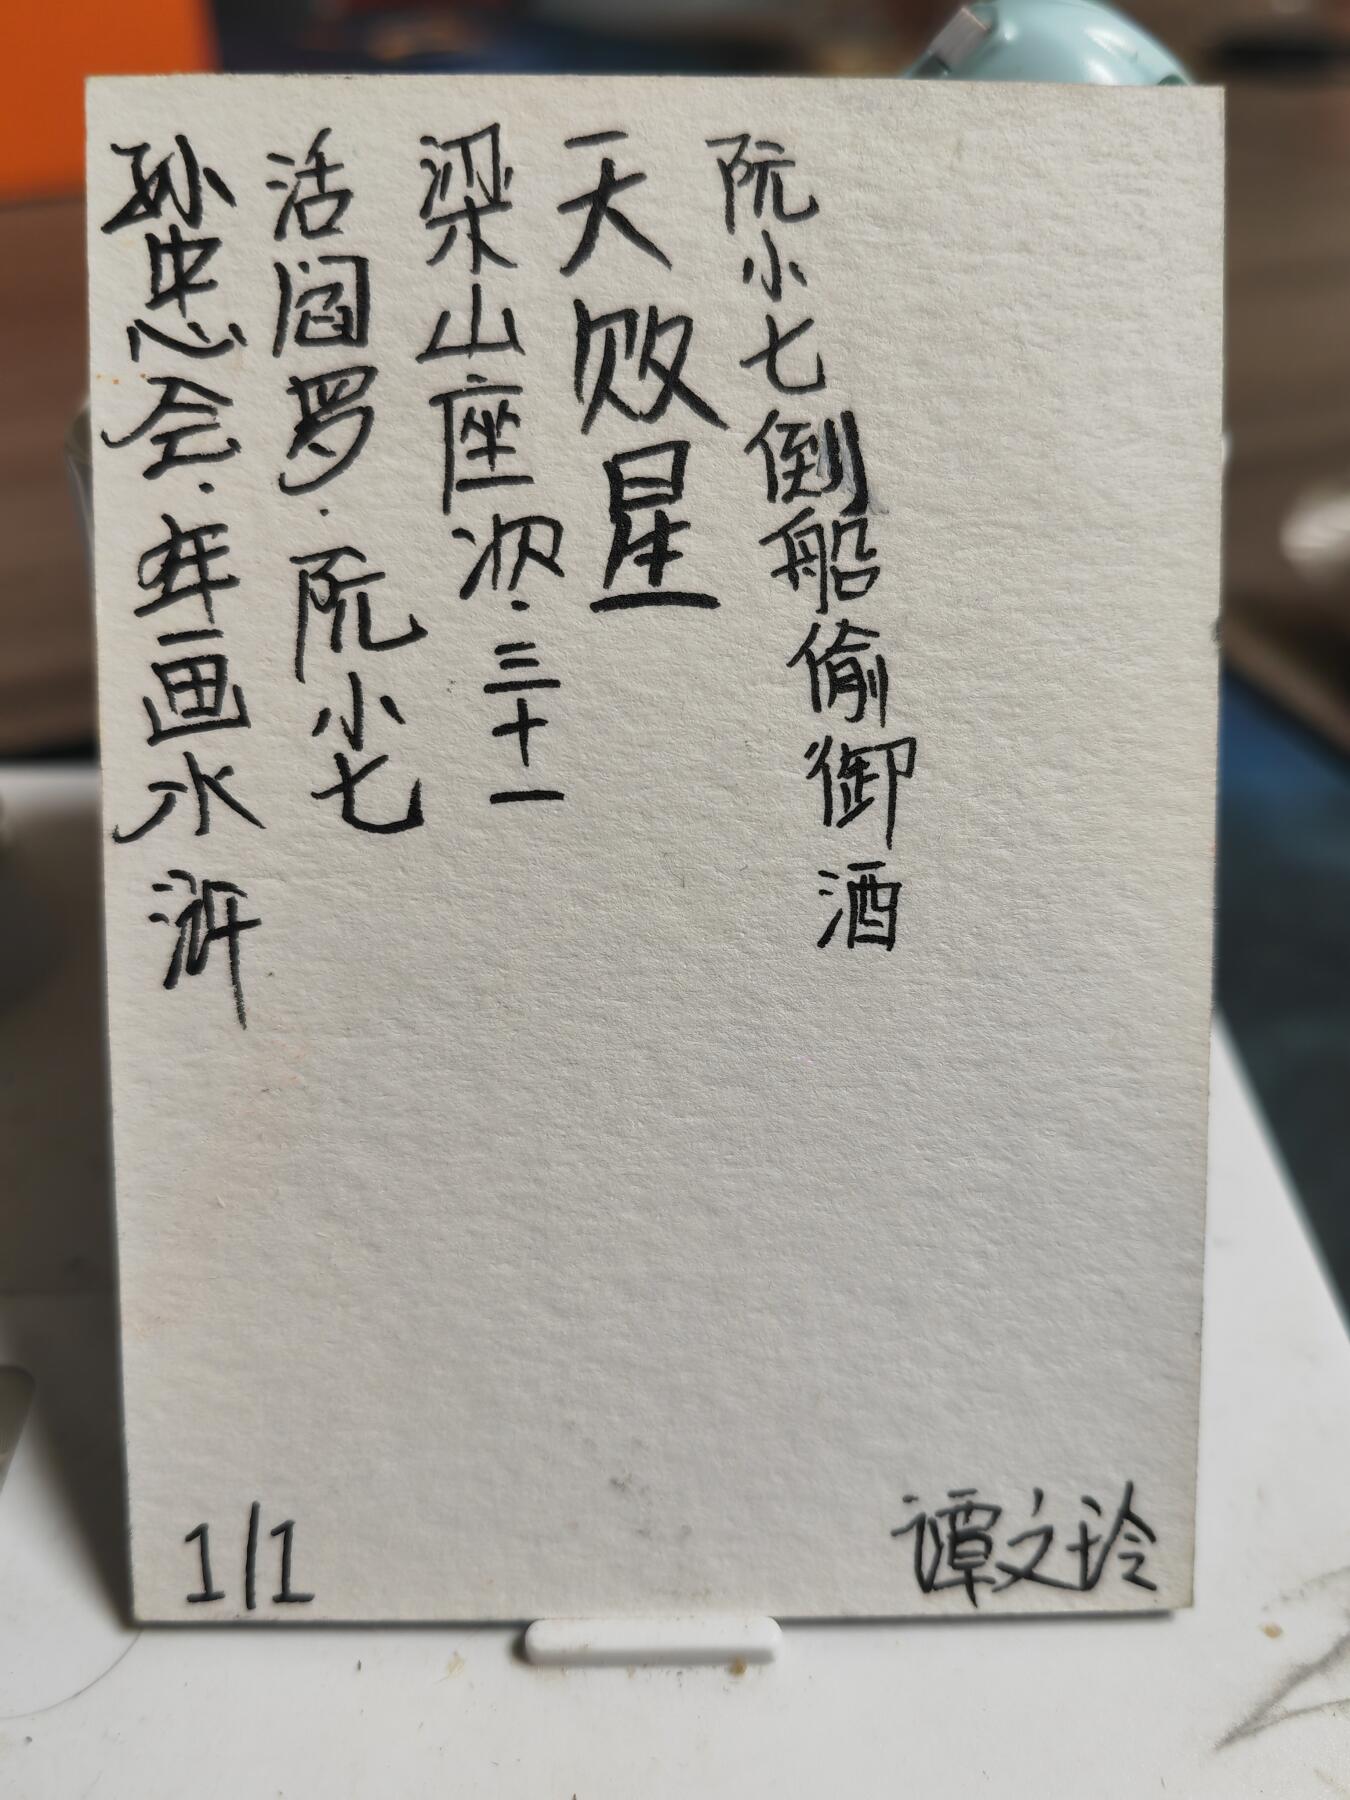 孙忠会·年画水浒
活阎罗·阮小七
梁山座次·三十一
天败星
阮小七倒船偷御酒
1/1
谭文玲